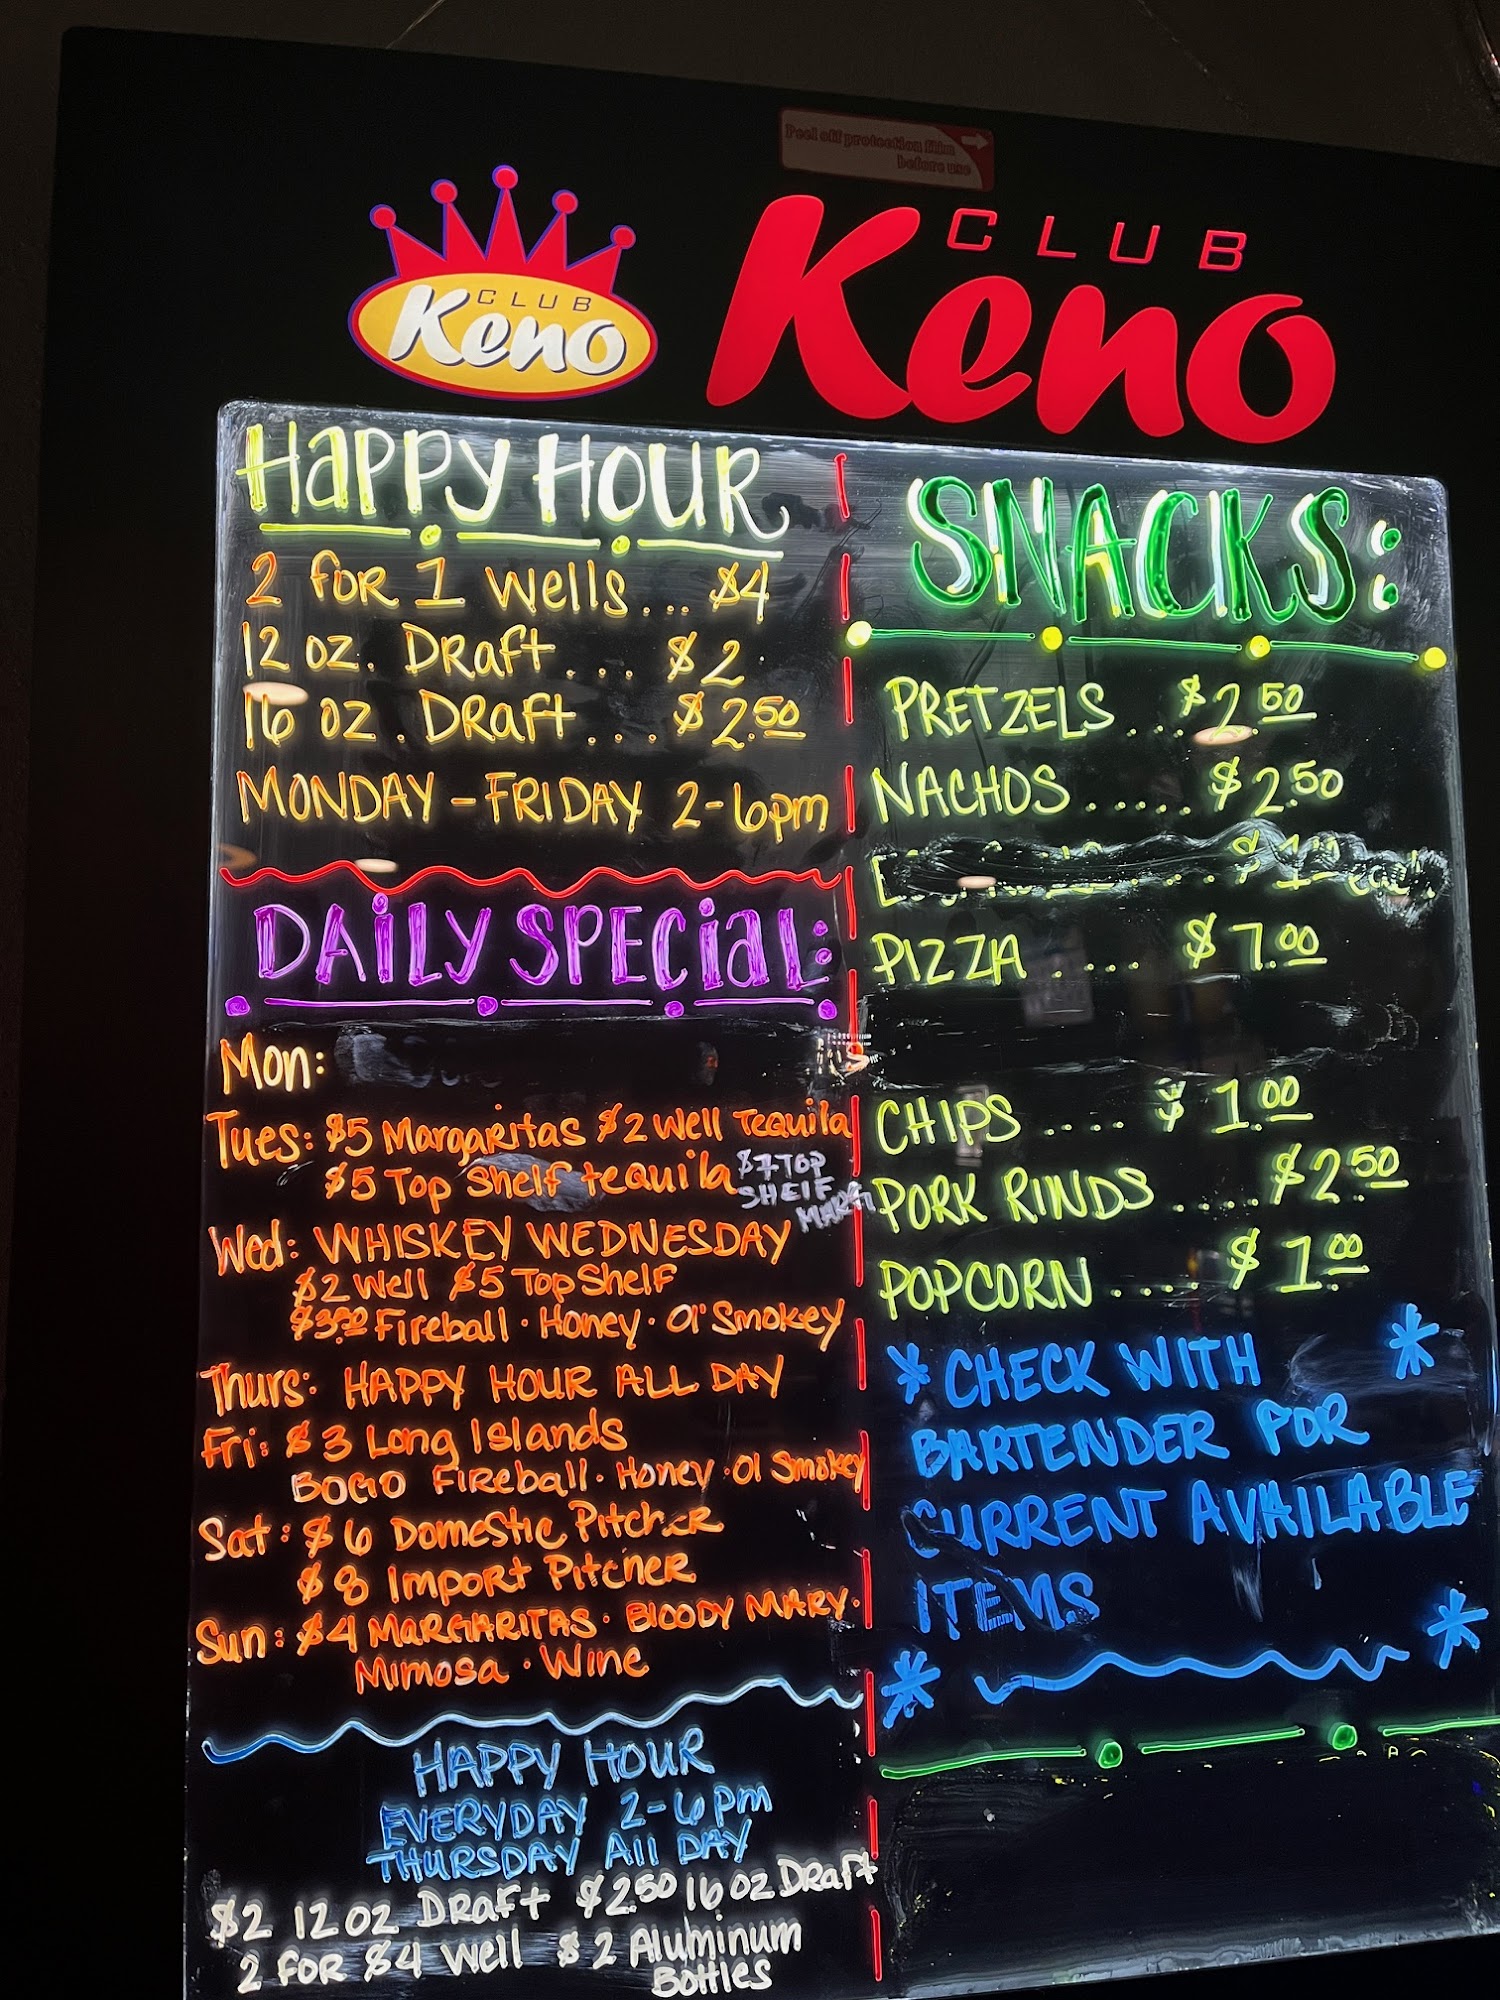 Peel off protection film
before use
CLUB
Keno
CLUB
Keno
Happy Hour
2 for 1 Wells... $4
12 oz. Draft... $2
16 oz. Draft.... $2.50
MONDAY - FRIDAY 2-6pm
DAILY SPECIAL:
Mon:
Tues: $5 Margaritas $2 Well Tequila
$5 Top Shelf tequila
$7 TOP
SHELF
MARG
Wed: WHISKEY WEDNESDAY
$2 Well $5 Top Shelf
Fireball · Honey · Ol' Smokey
Thurs: HAPPY HOUR ALL DAY
Fri: $3 Long Islands
BOGO Fireball · Honey · Ol Smokey
Sat: $6 Domestic Pitcher
$8 Import Pitcher
Sun: $4 MARGARITAS · BLOODY MARY ·
Mimosa · Wine
HAPPY HOUR
EVERYDAY 2-6pm
THURSDAY All DAY
$2 12 oz Draft $2.50 16 oz Draft
2 FOR $4 Well $2 Aluminum
Bottles
SNACKS:
PRETZELS ... $2.50
NACHOS ..... $2.50
PIZZA .... $7.00
CHIPS .... $1.00
PORK RINDS .... $2.50
POPCORN .... $1.00
* CHECK WITH *
BARTENDER FOR
CURRENT AVAILABLE
ITEMS
* *